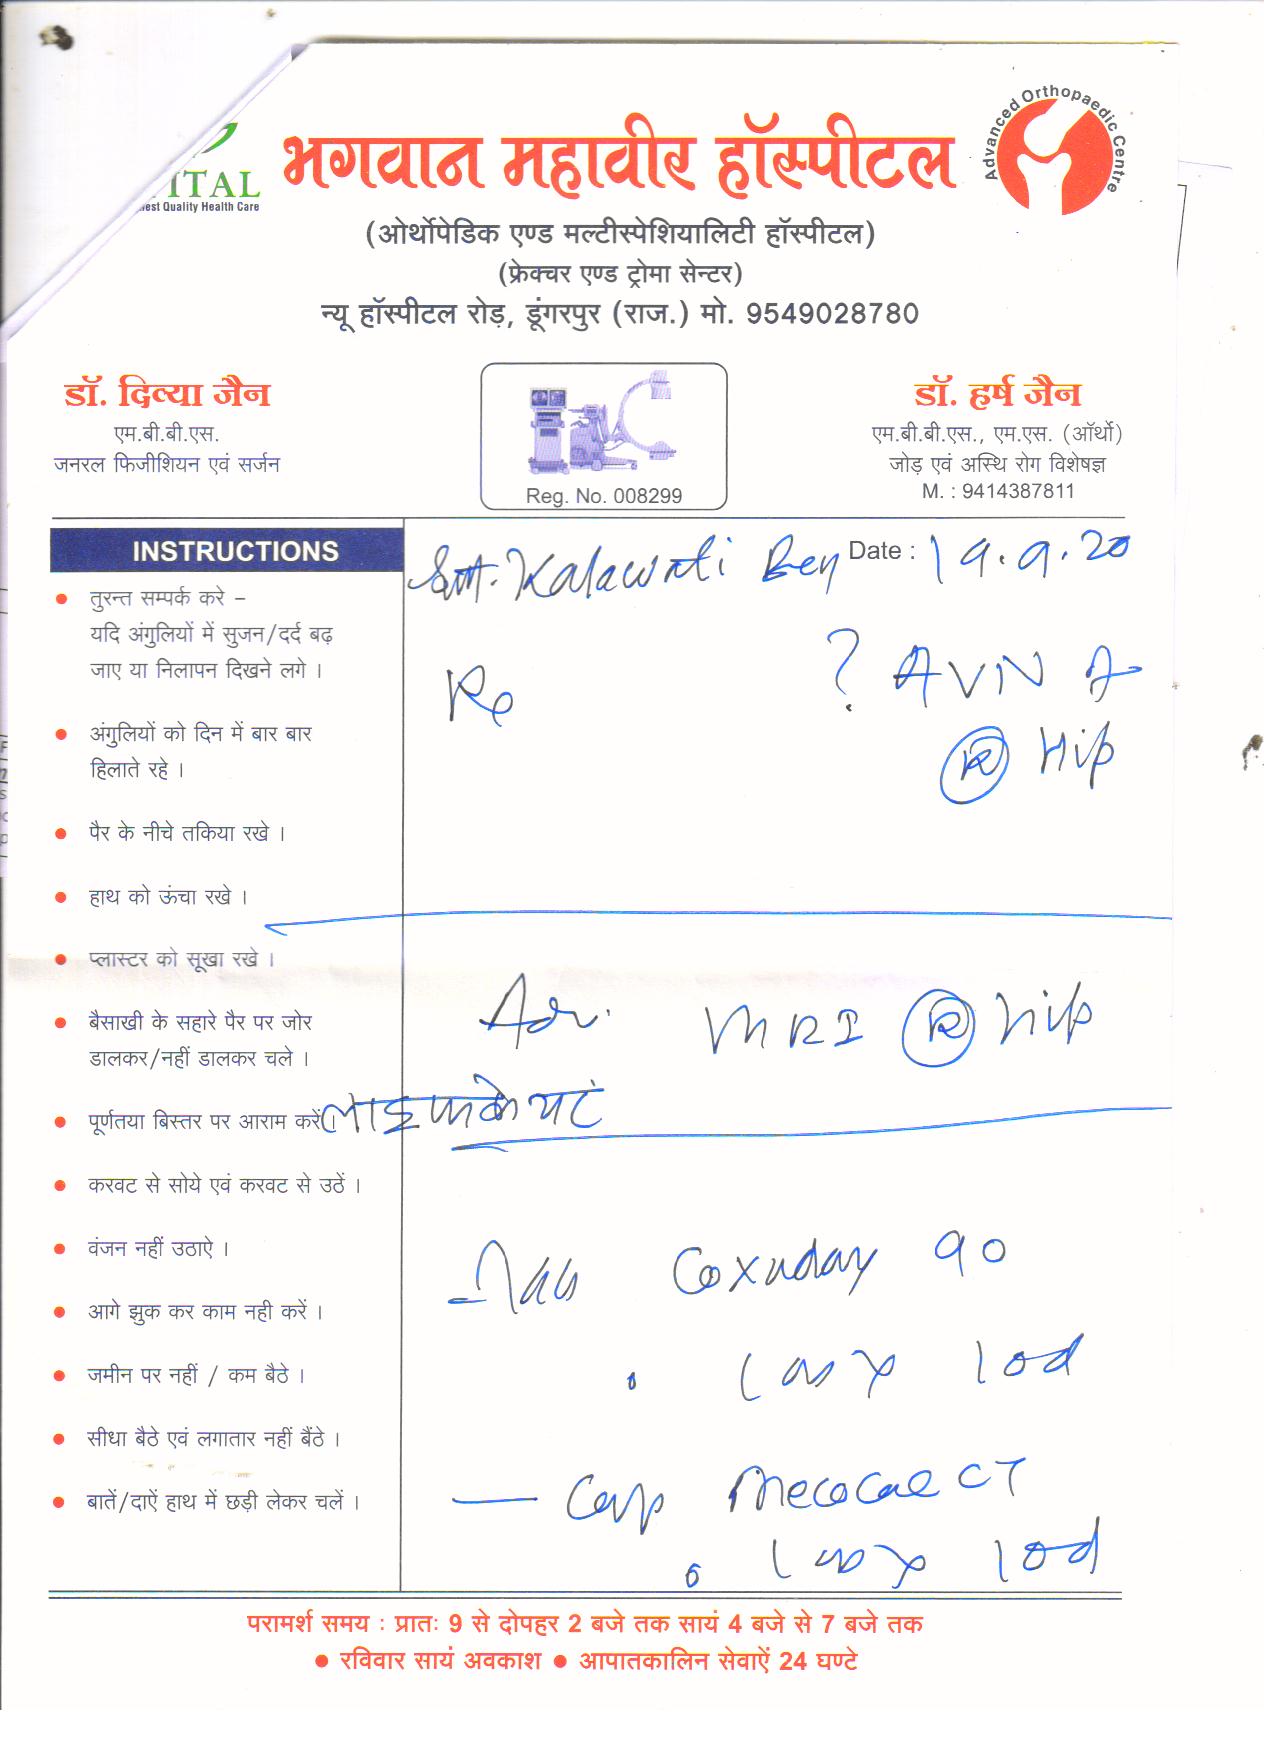 ITAL
est Quality Health Care
भगवान महावीर हॉस्पीटल
Advanced Orthopaedic Centre
(ओर्थोपेडिक एण्ड मल्टीस्पेशियालिटी हॉस्पीटल)
(फ्रेक्चर एण्ड ट्रोमा सेन्टर)
न्यू हॉस्पीटल रोड़, डूंगरपुर (राज.) मो. 9549028780
डॉ. दिव्या जैन
एम.बी.बी.एस.
जनरल फिजीशियन एवं सर्जन
Reg. No. 008299
डॉ. हर्ष जैन
एम.बी.बी.एस., एम.एस. (ऑर्थो)
जोड़ एवं अस्थि रोग विशेषज्ञ
M. : 9414387811
INSTRUCTIONS
• तुरन्त सम्पर्क करे –
यदि अंगुलियों में सुजन/दर्द बढ़
जाए या निलापन दिखने लगे ।
• अंगुलियों को दिन में बार बार
हिलाते रहे ।
• पैर के नीचे तकिया रखे ।
• हाथ को ऊंचा रखे ।
• प्लास्टर को सूखा रखे ।
• बैसाखी के सहारे पैर पर जोर
डालकर/नहीं डालकर चले ।
• पूर्णतया बिस्तर पर आराम करें ।
• करवट से सोये एवं करवट से उठें ।
• वंजन नहीं उठाऐ ।
• आगे झुक कर काम नही करें ।
• जमीन पर नहीं / कम बैठे ।
• सीधा बैठे एवं लगातार नहीं बैंठे ।
• बातें/दाऐं हाथ में छड़ी लेकर चलें ।
Smt. Kalawati Ben Date : 19.9.20
Rx ? AVN
(R) Hip
Adv. MRI (R) hip
लाइफकेयर
- Tab Coxuday 90
x 10d
— Cap MecoCal CT
x 10d
परामर्श समय : प्रातः 9 से दोपहर 2 बजे तक सायं 4 बजे से 7 बजे तक
• रविवार सायं अवकाश • आपातकालिन सेवाऐं 24 घण्टे